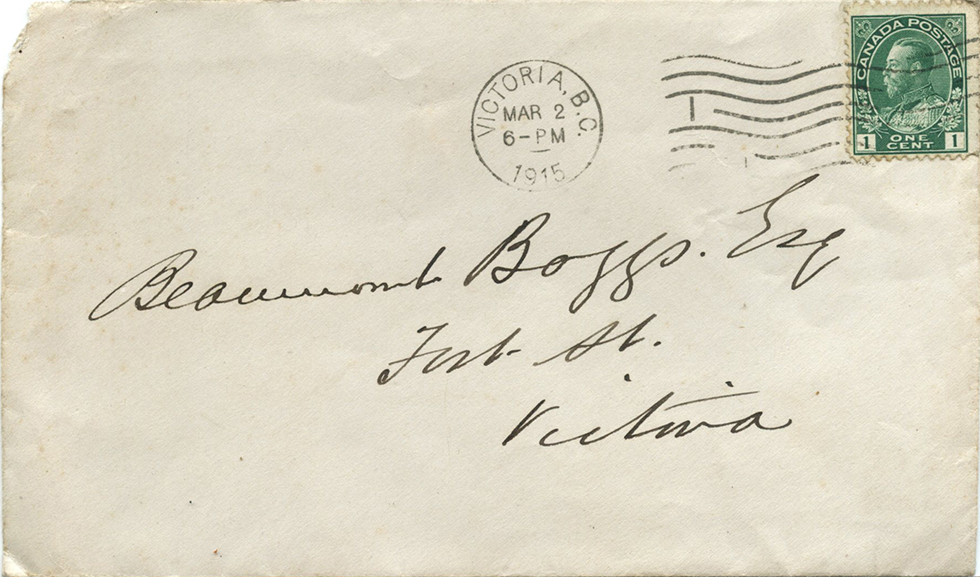 CANADA POSTAGE
1 ONE CENT 1
VICTORIA, B.C.
MAR 2
6-PM
1915
1
Beaumont Boggs. Esq
Fort St.
Victoria